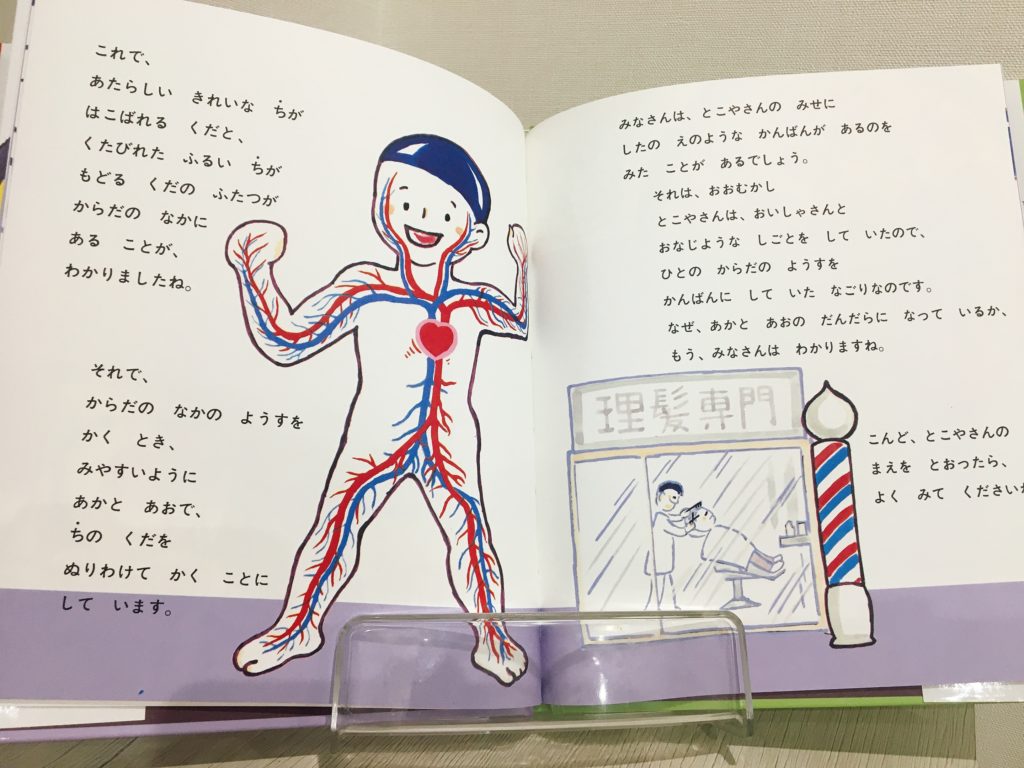 これで、
あたらしい　きれいな　ちが
はこばれる　くだと、
くたびれた　ふるい　ちが
もどる　くだの　ふたつが
からだの　なかに
ある　ことが、
わかりましたね。
それで、
からだの　なかの　ようすを
かく　とき、
みやすいように
あかと　あおで、
ちの　くだを
ぬりわけて　かく　ことに
して　います。
みなさんは、とこやさんの　みせに
したの　えのような　かんばんが　あるのを
みた　ことが　あるでしょう。
それは、おおむかし
とこやさんは、おいしゃさんと
おなじような　しごとを　して　いたので、
ひとの　からだの　ようすを
かんばんに　して　いた　なごりなのです。
なぜ、あかと　あおの　だんだらに　なって　いるか、
もう、みなさんは　わかりますね。
理髪専門
こんど、とこやさんの
まえを　とおったら、
よく　みて　ください